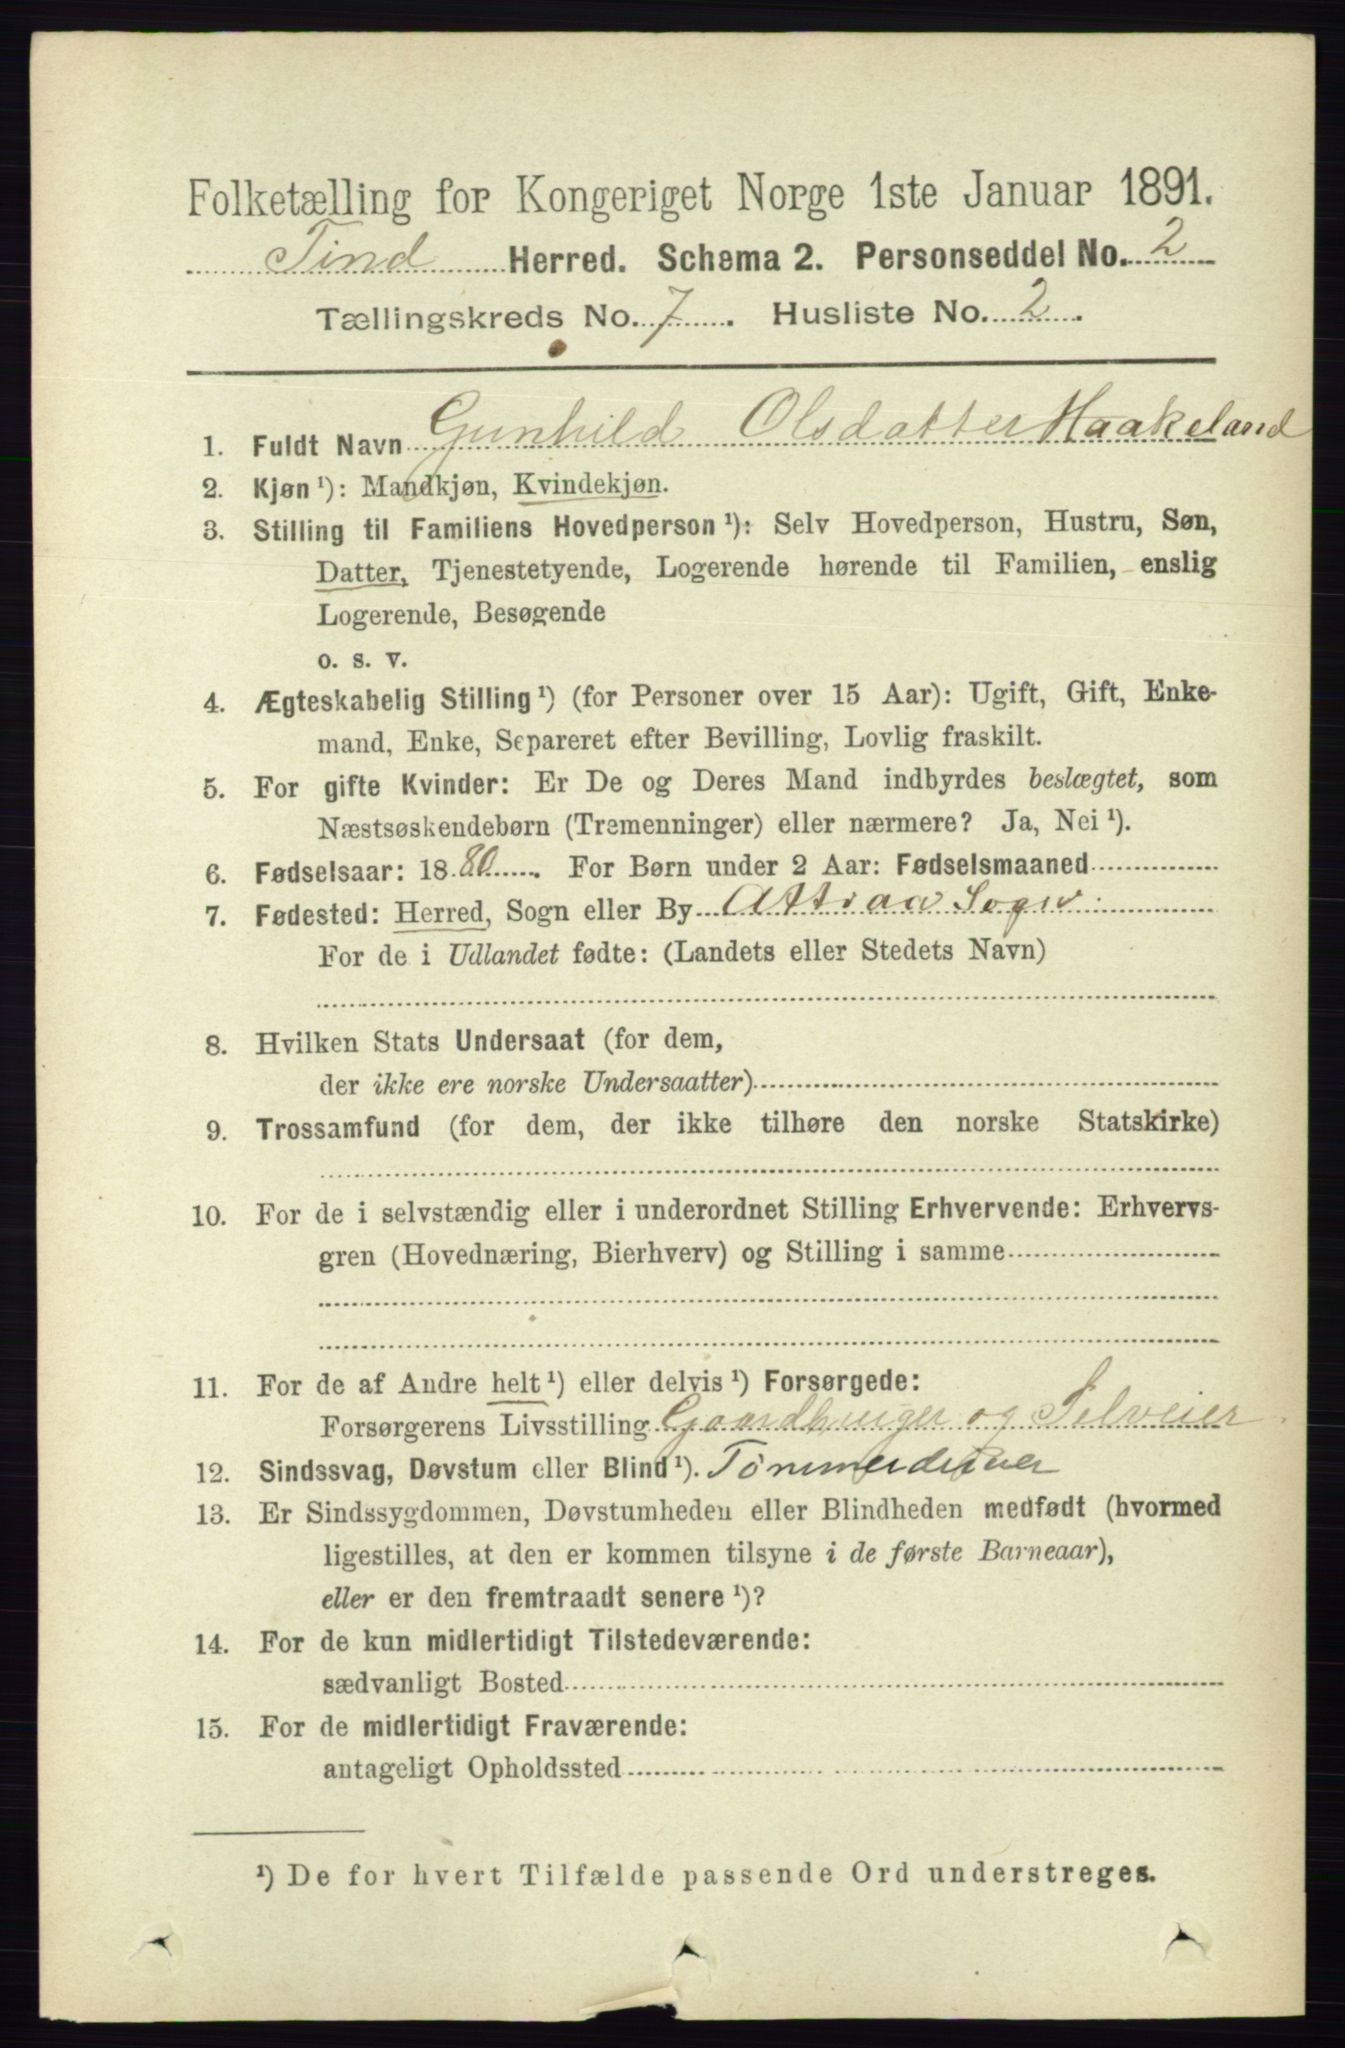 Folketælling for Kongeriget Norge 1ste Januar 1891.
Tind Herred. Schema 2. Personseddel No. 2
Tællingskreds No. 7. Husliste No. 2.
1. Fuldt Navn Gunhild Olsdatter Haakeland
2. Kjøn ¹): Mandkjøn, Kvindekjøn.
3. Stilling til Familiens Hovedperson ¹): Selv Hovedperson, Hustru, Søn,
Datter, Tjenestetyende, Logerende hørende til Familien, enslig
Logerende, Besøgende
o. s. v.
4. Ægteskabelig Stilling ¹) (for Personer over 15 Aar): Ugift, Gift, Enke-
mand, Enke, Separeret efter Bevilling, Lovlig fraskilt.
5. For gifte Kvinder: Er De og Deres Mand indbyrdes beslægtet, som
Næstsøskendebørn (Tremenninger) eller nærmere? Ja, Nei ¹).
6. Fødselsaar: 1880. For Børn under 2 Aar: Fødselsmaaned
7. Fødested: Herred, Sogn eller By Attraa Sogn
For de i Udlandet fødte: (Landets eller Stedets Navn)
8. Hvilken Stats Undersaat (for dem,
der ikke ere norske Undersaatter)
9. Trossamfund (for dem, der ikke tilhøre den norske Statskirke)
10. For de i selvstændig eller i underordnet Stilling Erhvervende: Erhvervs-
gren (Hovednæring, Bierhverv) og Stilling i samme
11. For de af Andre helt ¹) eller delvis ¹) Forsørgede:
Forsørgerens Livsstilling Gaardbruger og Selveier
12. Sindssvag, Døvstum eller Blind ¹). Tømmerdriver
13. Er Sindssygdommen, Døvstumheden eller Blindheden medfødt (hvormed
ligestilles, at den er kommen tilsyne i de første Barneaar),
eller er den fremtraadt senere ¹)?
14. For de kun midlertidigt Tilstedeværende:
sædvanligt Bosted
15. For de midlertidigt Fraværende:
antageligt Opholdssted
¹) De for hvert Tilfælde passende Ord understreges.